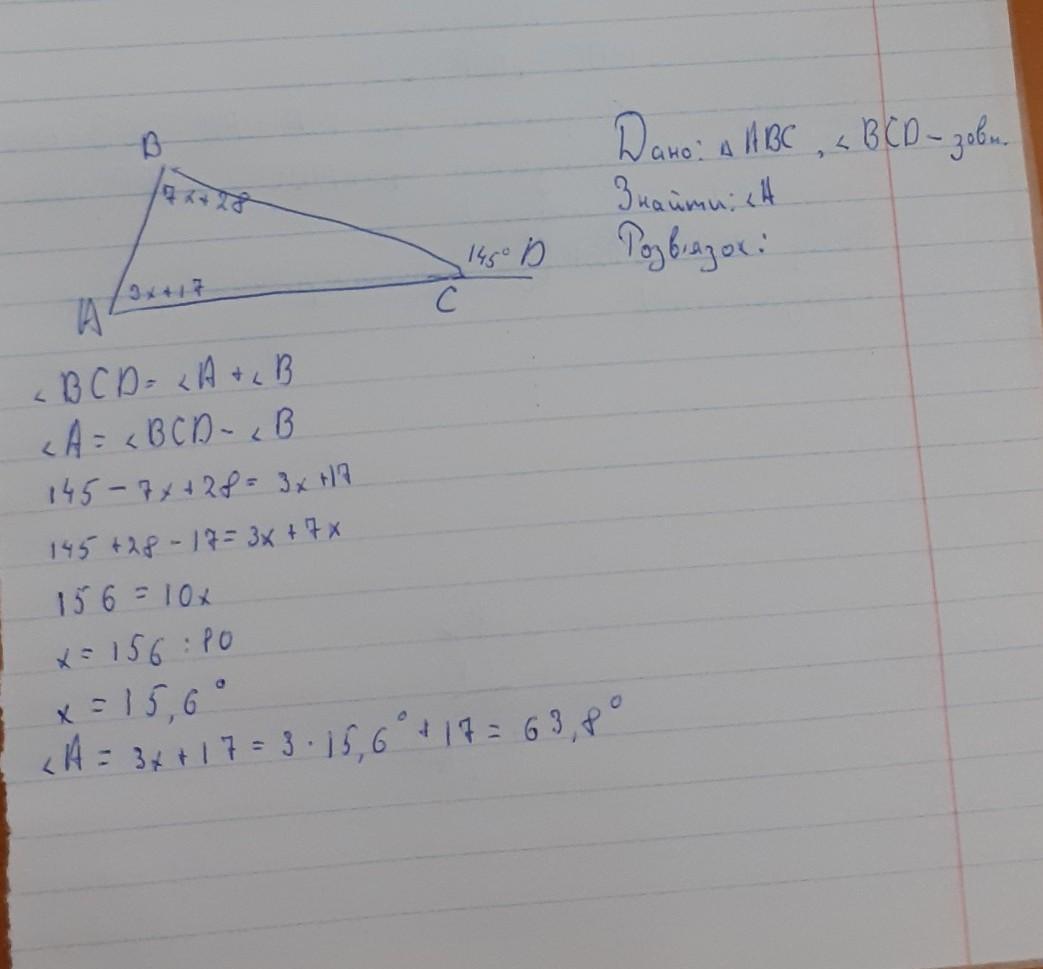 B
7x+28
3x+17
A
145° D
C
Дано: △ ABC, ∠ BCD – зовн.
Знайти: ∠A
Розв'язок:
∠BCD = ∠A + ∠B
∠A = ∠BCD – ∠B
145 – 7x + 28 = 3x + 17
145 + 28 – 17 = 3x + 7x
156 = 10x
x = 156 : 10
x = 15,6°
∠A = 3x + 17 = 3 · 15,6° + 17 = 63,8°